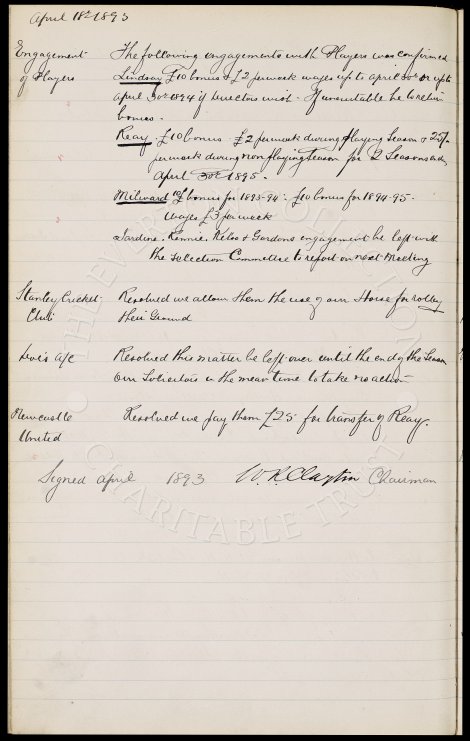 April 18th 1893
Engagement of Players
The following engagements with Players was confirmed
Lindsay £10 bonus & £2 per week wages up to april 30th or up to
april 30th 1894 if Directors wish. If unsuitable he to return
bonus.
Reay. £10 bonus £2 per week during playing Season & 25/-
per week during non playing Season for 2 Seasons end
April 30th 1895.
Milward 10£ bonus for 1893-94. £10 bonus for 1894-95.
Wages £3 per week
Jardine. Rennie. Kelso & Gordons engagement be left with
the Selection Committee to report on next Meeting
Stanley Cricket Club
Resolved we allow them the use of our Horse for rolling
their Ground
a/c
Resolved this matter be left over until the end of the Season
our Solicitors in the mean time to take no action.
Newcastle United
Resolved we pay them £25 for transfer of Reay.
Signed April 1893 W.R. Clayton Chairman
THE EVERTON COLLECTION
CHARITABLE TRUST